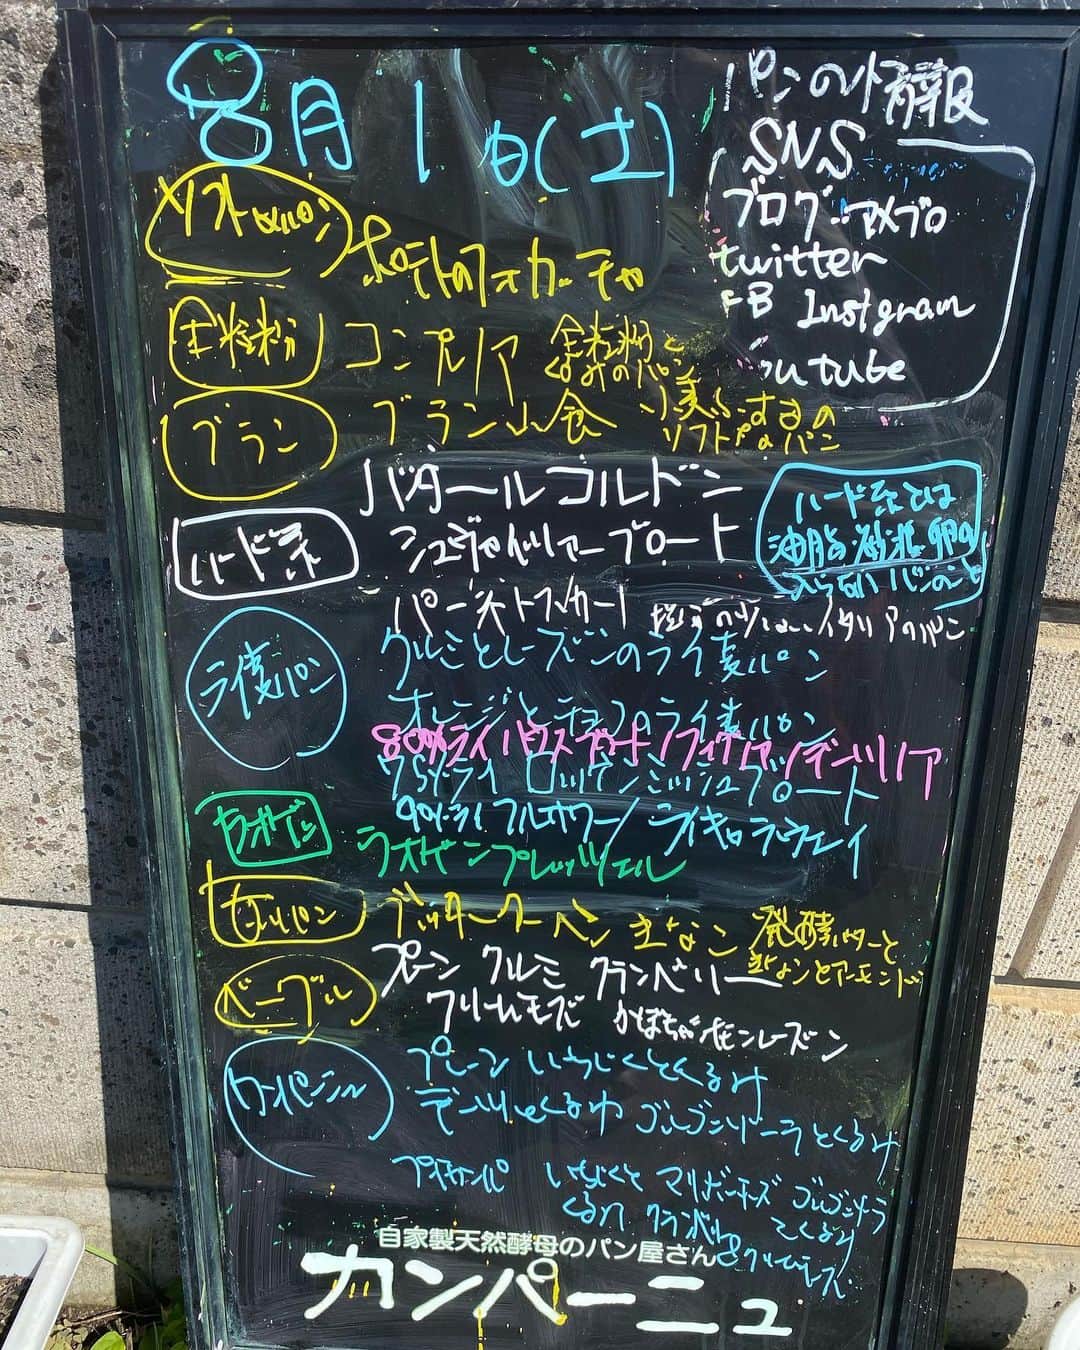 8月1日(土)
パンの情報
SNS
ブログ アメブロ
twitter
FB Instgram
outube
ソフトなパン
ポテトのフォカッチャ
全粒粉
コンプレノア 全粒粉と
くるみのパン
ブラン
ブラン山食
ソフトなパン
ハード系
バタール コルドン
ハード系とは
油脂 砂糖 卵の
入らないパンのこと
パーネトスカーノ 塩分の少ないイタリアのパン
ライ麦パン
クルミとレーズンのライ麦パン
オレンジとチョコのライ麦パン
80%ライ ハウスブロート
ライ ロッゲンミッシュブロート
90%ライ フルオサワー/
ラオゲン
ラオゲンプレッツェル
甘いパン
ブッタークーヘン きなこ 発酵バターと
きなことアーモンド
ベーグル
プレーン クルミ クランベリー
クリームチーズ かぼちゃ レーズン
カンパーニュ
プレーン いちじくとくるみ
デーツとくるみ ゴルゴンゾーラとくるみ
プチカンパ いちじくと マリボーチーズ ゴルゴンゾーラ
くるみ クランベリー とくるみ
&クリームチーズ
自家製天然酵母のパン屋さん
カンパーニュ